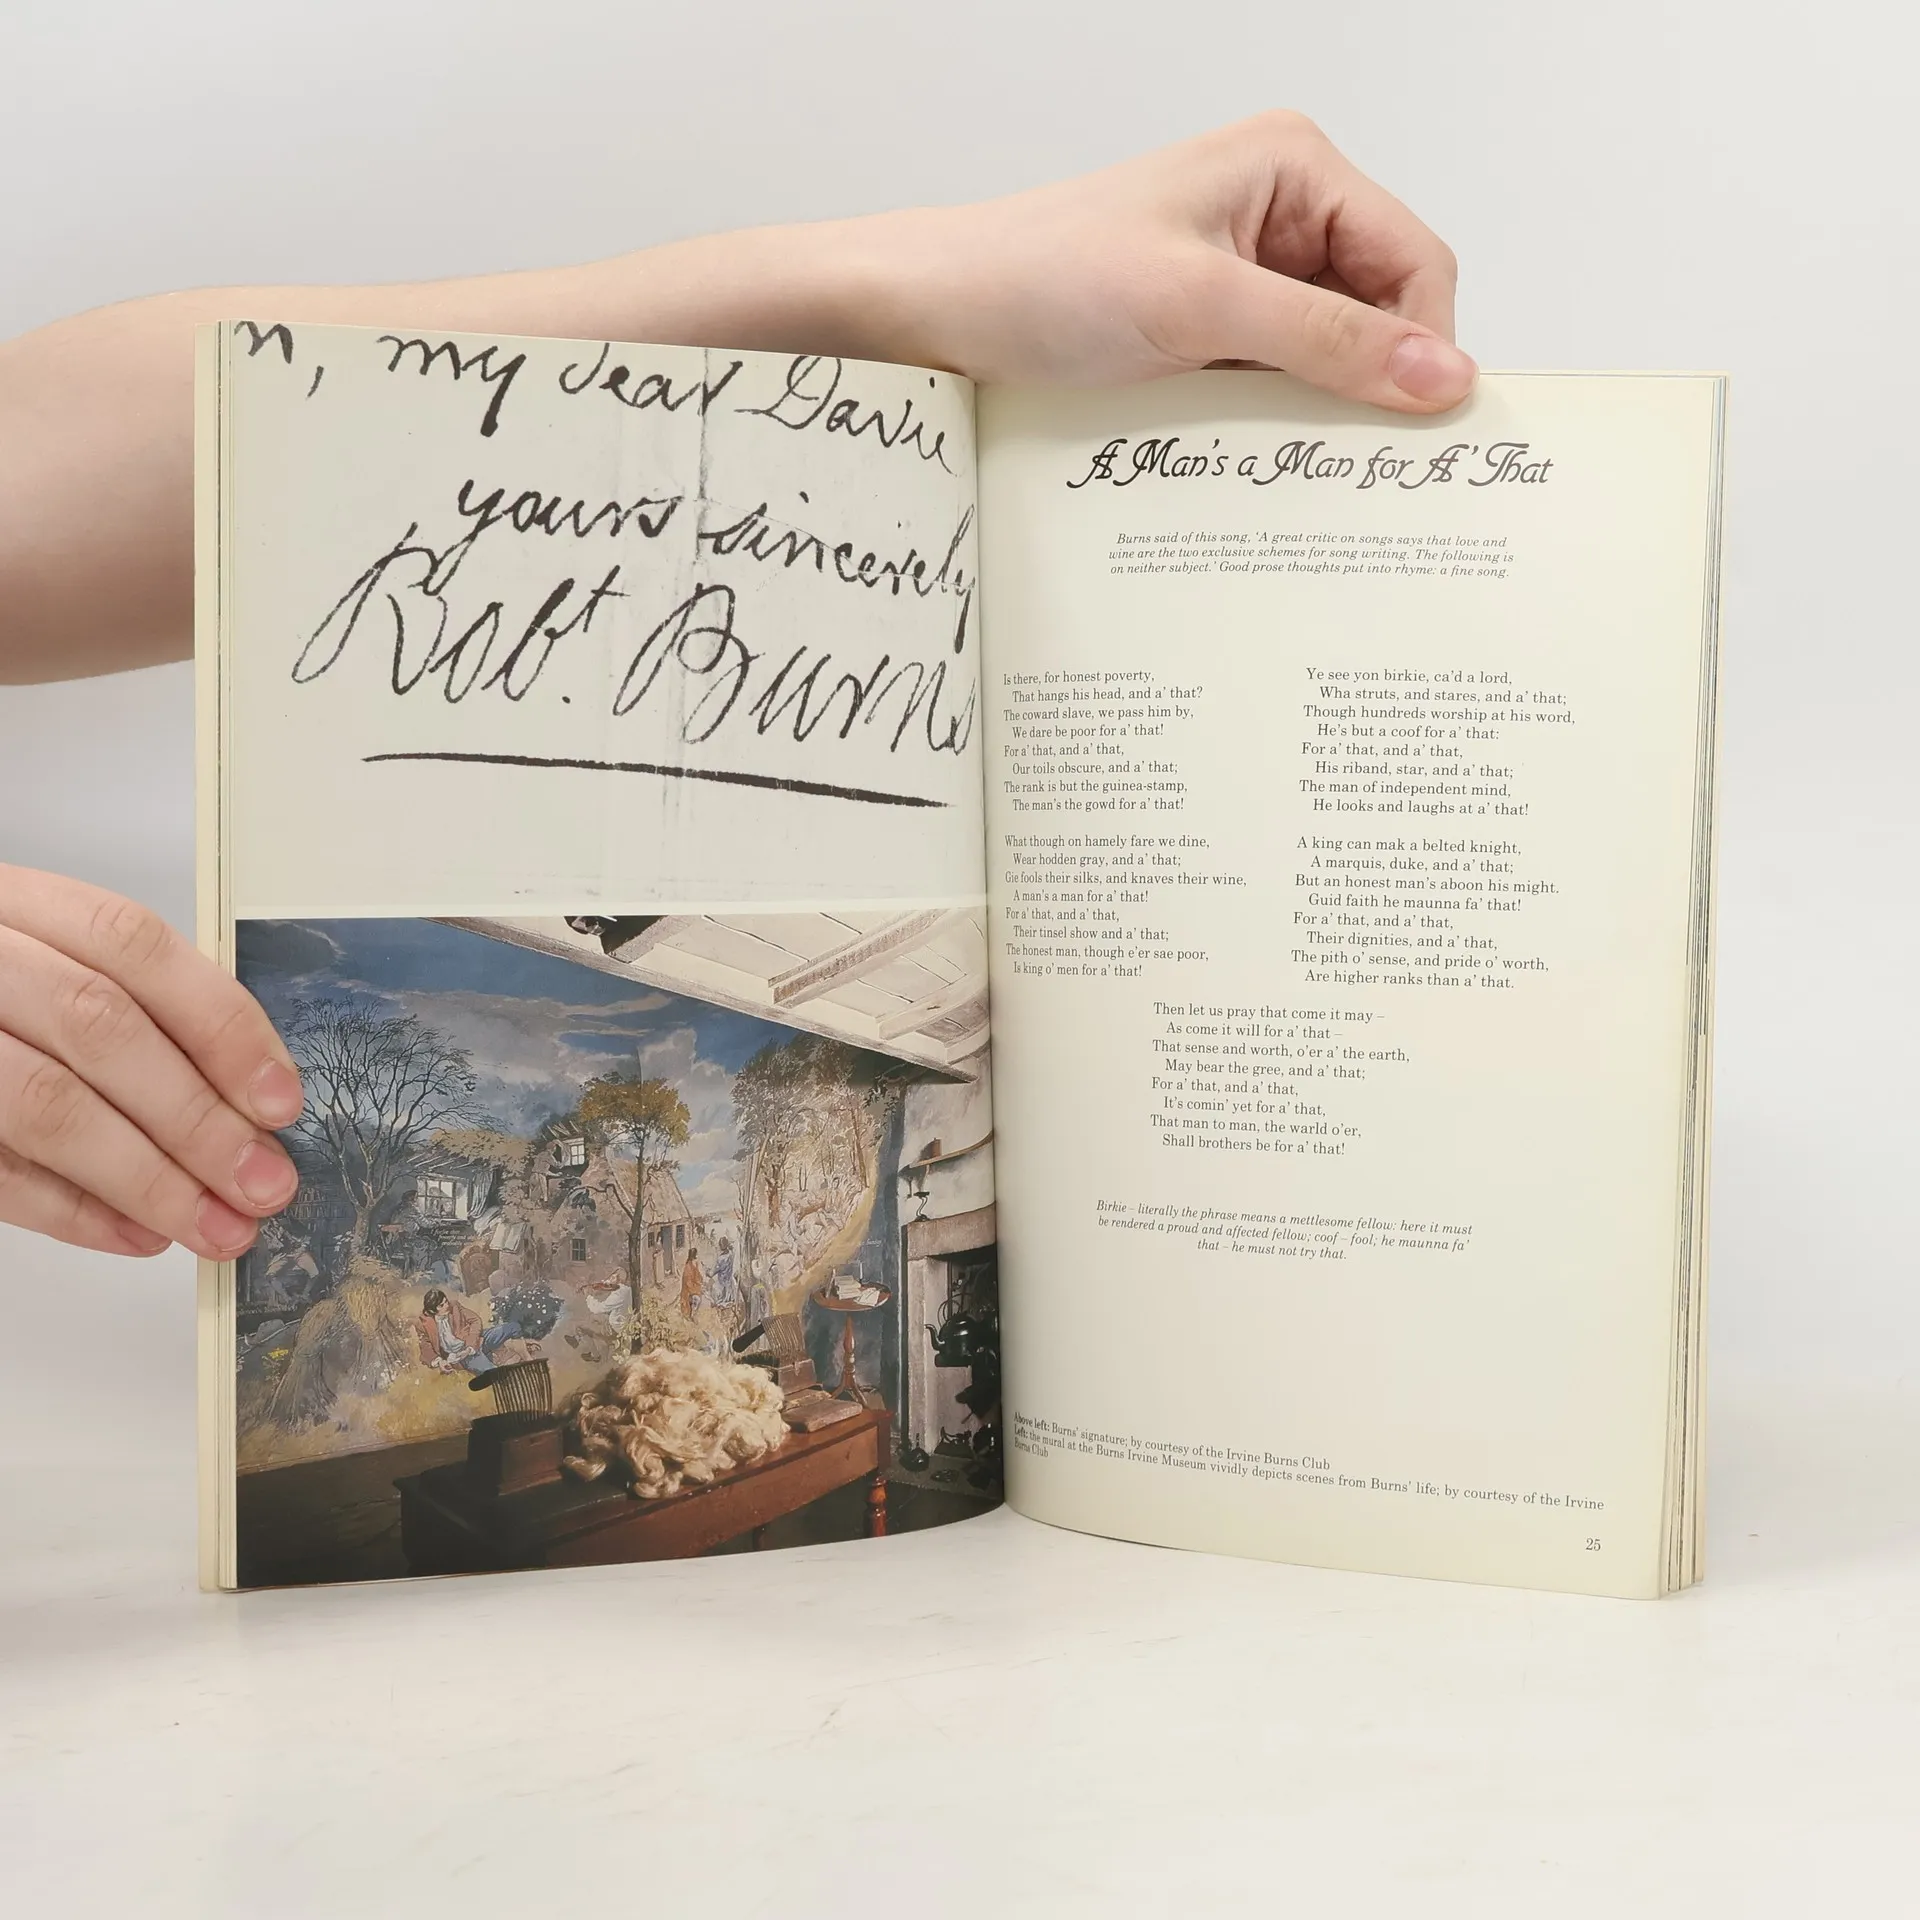 n, my dear Davie
yours sincerely
Robt. Burns
A Man's a Man for A' That
Burns said of this song, 'A great critic on songs says that love and
wine are the two exclusive schemes for song writing. The following is
on neither subject.' Good prose thoughts put into rhyme: a fine song.
Is there, for honest poverty,
That hangs his head, and a' that?
The coward slave, we pass him by,
We dare be poor for a' that!
For a' that, and a' that,
Our toils obscure, and a' that;
The rank is but the guinea-stamp,
The man's the gowd for a' that!
What though on hamely fare we dine,
Wear hodden gray, and a' that;
Gie fools their silks, and knaves their wine,
A man's a man for a' that!
For a' that, and a' that,
Their tinsel show and a' that;
The honest man, though e'er sae poor,
Is king o' men for a' that!
Ye see yon birkie, ca'd a lord,
Wha struts, and stares, and a' that;
Though hundreds worship at his word,
He's but a coof for a' that:
For a' that, and a' that,
His riband, star, and a' that;
The man of independent mind,
He looks and laughs at a' that!
A king can mak a belted knight,
A marquis, duke, and a' that;
But an honest man's aboon his might.
Guid faith he maunna fa' that!
For a' that, and a' that,
Their dignities, and a' that,
The pith o' sense, and pride o' worth,
Are higher ranks than a' that.
Then let us pray that come it may –
As come it will for a' that –
That sense and worth, o'er a' the earth,
May bear the gree, and a' that;
For a' that, and a' that,
It's comin' yet for a' that,
That man to man, the warld o'er,
Shall brothers be for a' that!
Birkie – literally the phrase means a mettlesome fellow: here it must
be rendered a proud and affected fellow; coof – fool; he maunna fa'
that – he must not try that.
Above left: Burns' signature; by courtesy of the Irvine Burns Club
Left: the mural at the Burns Irvine Museum vividly depicts scenes from Burns' life; by courtesy of the Irvine
Burns Club
25